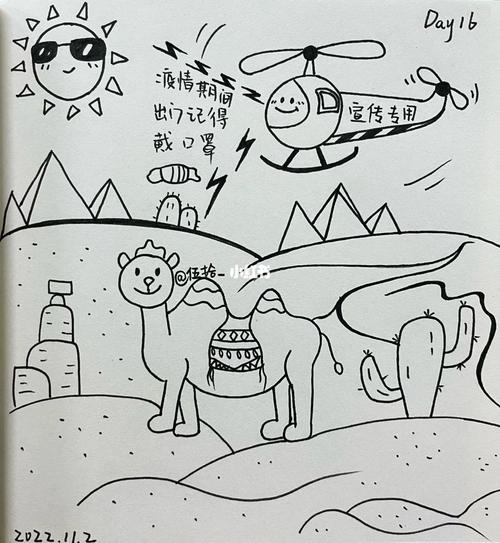 Day16
疫情期间
出门记得
戴口罩
宣传专用
@伍拾_
小红书
2022.11.2